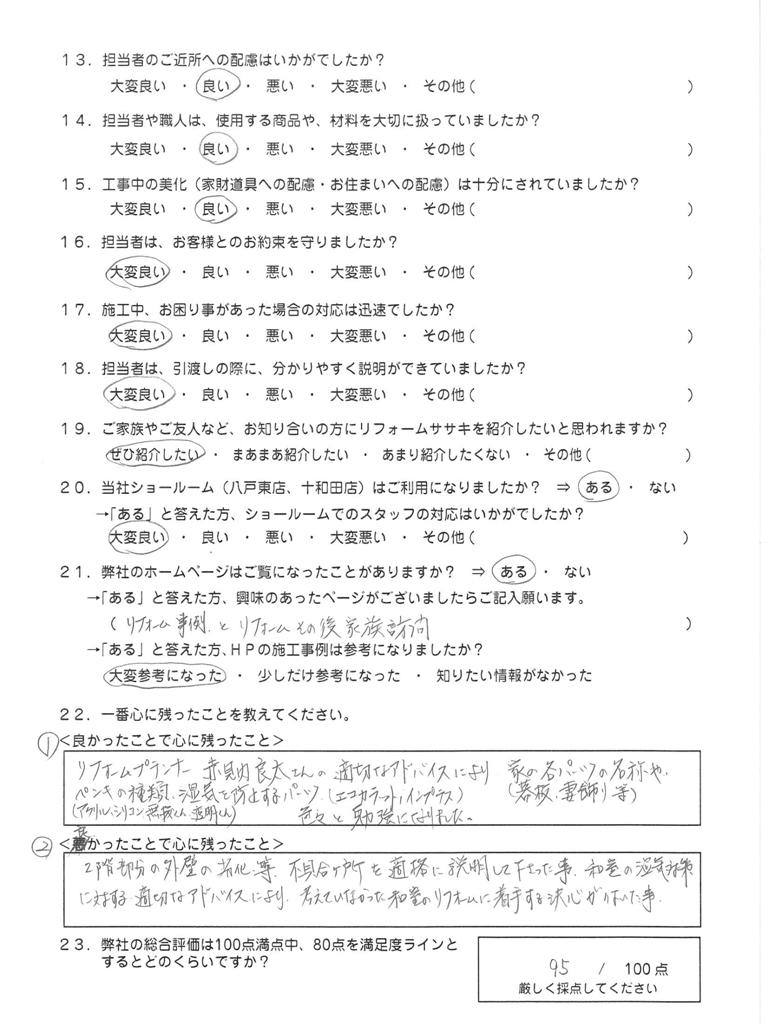 13．担当者のご近所への配慮はいかがでしたか？
大変良い ・ 良い ・ 悪い ・ 大変悪い ・ その他（ ）
14．担当者や職人は、使用する商品や、材料を大切に扱っていましたか？
大変良い ・ 良い ・ 悪い ・ 大変悪い ・ その他（ ）
15．工事中の美化（家財道具への配慮・お住まいへの配慮）は十分にされていましたか？
大変良い ・ 良い ・ 悪い ・ 大変悪い ・ その他（ ）
16．担当者は、お客様とのお約束を守りましたか？
大変良い ・ 良い ・ 悪い ・ 大変悪い ・ その他（ ）
17．施工中、お困り事があった場合の対応は迅速でしたか？
大変良い ・ 良い ・ 悪い ・ 大変悪い ・ その他（ ）
18．担当者は、引渡しの際に、分かりやすく説明ができていましたか？
大変良い ・ 良い ・ 悪い ・ 大変悪い ・ その他（ ）
19．ご家族やご友人など、お知り合いの方にリフォームササキを紹介したいと思われますか？
ぜひ紹介したい ・ まあまあ紹介したい ・ あまり紹介したくない ・ その他（ ）
20．当社ショールーム（八戸東店、十和田店）はご利用になりましたか？ ⇒ ある ・ ない
→「ある」と答えた方、ショールームでのスタッフの対応はいかがでしたか？
大変良い ・ 良い ・ 悪い ・ 大変悪い ・ その他（ ）
21．弊社のホームページはご覧になったことがありますか？ ⇒ ある ・ ない
→「ある」と答えた方、興味のあったページがございましたらご記入願います。
（ リフォーム事例 と リフォームその後 家族訪問 ）
→「ある」と答えた方、ＨＰの施工事例は参考になりましたか？
大変参考になった ・ 少しだけ参考になった ・ 知りたい情報がなかった
22．一番心に残ったことを教えてください。
① ＜良かったことで心に残ったこと＞
リフォームプランナー 赤見内良太さんの 適切なアドバイスにより 家の各パーツの名称や、
ペンキの種類、湿気を防止するパーツ（エコカラット、インプラス） （幕板、妻飾り等）
（アクリル、シリコン 色々と勉強になりました。
② ＜良かったことで心に残ったこと＞
2階部分の外壁の劣化等、不具合ヶ所を適格に説明して下さった事、和室の湿気対策
に対する適切なアドバイスにより、考えていなかった和室のリフォームに着手する決心がついた事。
23．弊社の総合評価は100点満点中、80点を満足度ラインと
するとどのくらいですか？
95 / 100点
厳しく採点してください